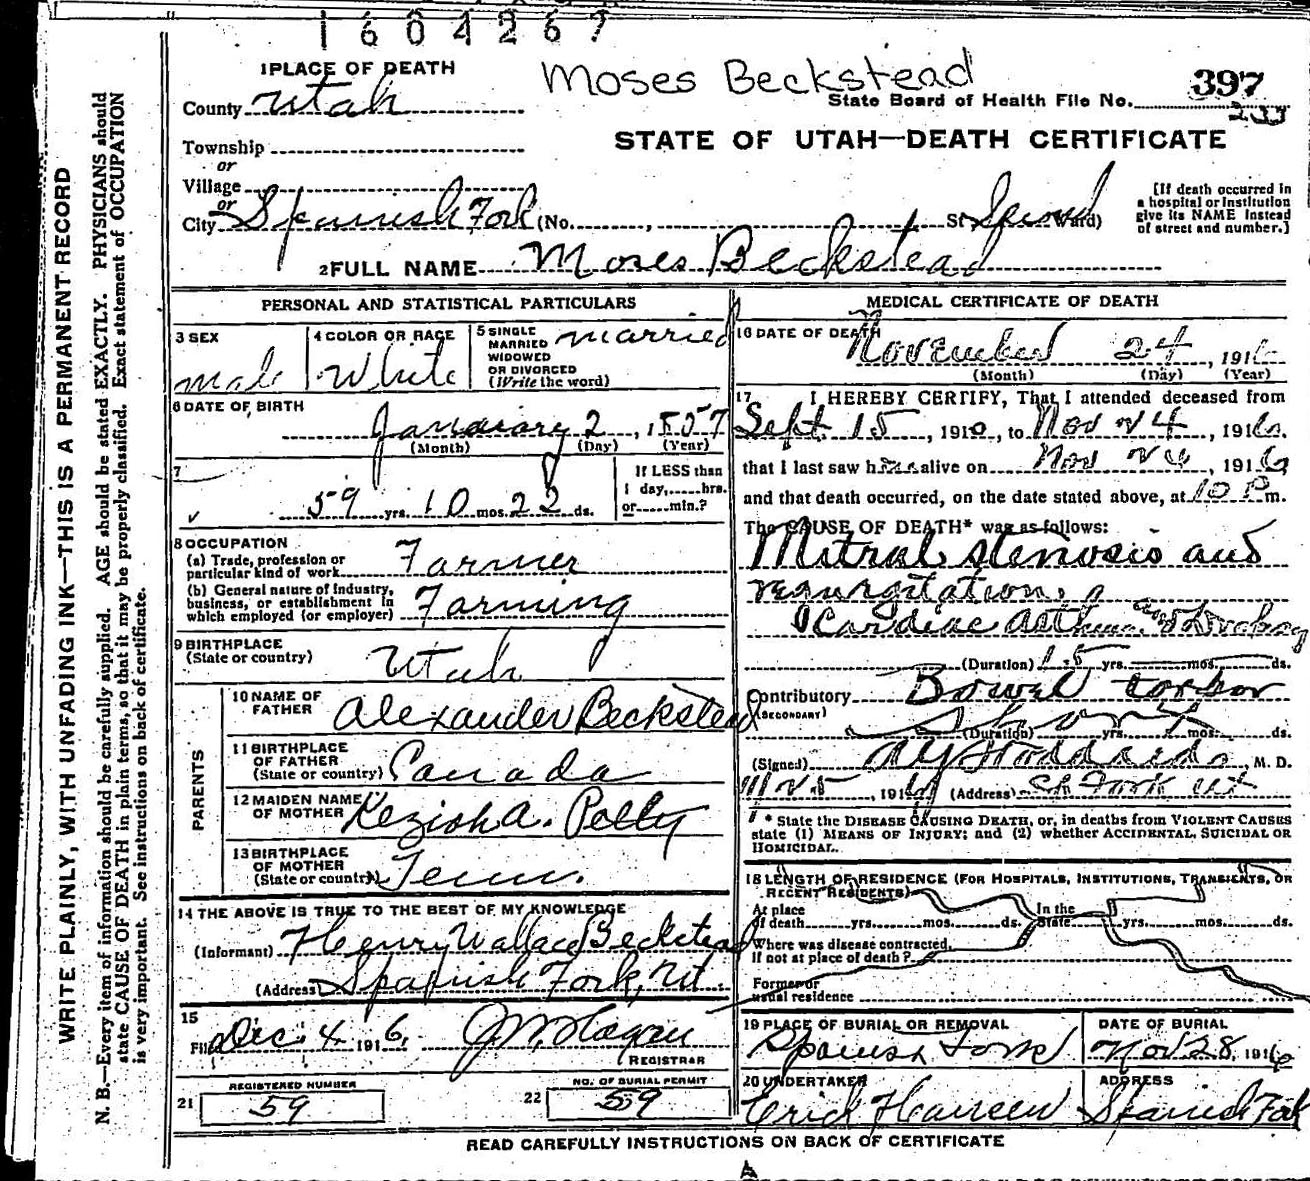 1604267
Moses Beckstead
1 PLACE OF DEATH
County Utah
State Board of Health File No. 397
233
Township
or
Village
or
City Spanish Fork (No. , St Ward)
STATE OF UTAH—DEATH CERTIFICATE
[If death occurred in
a hospital or institution
give its NAME instead
of street and number.]
2 FULL NAME Moses Beckstead
PERSONAL AND STATISTICAL PARTICULARS
3 SEX
male
4 COLOR OR RACE
White
5 SINGLE
MARRIED
WIDOWED
OR DIVORCED
(Write the word)
married
6 DATE OF BIRTH
January 2, 1857
(Month) (Day) (Year)
7
59 yrs. 10 mos. 22 ds.
If LESS than
1 day, hrs.
or min.?
8 OCCUPATION
(a) Trade, profession or
particular kind of work Farmer
(b) General nature of industry,
business, or establishment in
which employed (or employer) Farming
9 BIRTHPLACE
(State or country) Utah
PARENTS
10 NAME OF
FATHER Alexander Beckstead
11 BIRTHPLACE
OF FATHER
(State or country) Canada
12 MAIDEN NAME
OF MOTHER Keziah A. Petty
13 BIRTHPLACE
OF MOTHER
(State or country) Tenn.
14 THE ABOVE IS TRUE TO THE BEST OF MY KNOWLEDGE
(Informant) Henry Wallace Beckstead
(Address) Spanish Fork, Ut.
15
Filed Dec. 4 1916.
REGISTRAR
REGISTERED NUMBER
21 59
NO. OF BURIAL PERMIT
22 59
MEDICAL CERTIFICATE OF DEATH
16 DATE OF DEATH
November 24, 1916
(Month) (Day) (Year)
17 I HEREBY CERTIFY, That I attended deceased from
Sept. 15, 1910, to Nov 24, 1916.
that I last saw him alive on Nov 24, 1916
and that death occurred, on the date stated above, at 10 P m.
The CAUSE OF DEATH* was as follows:
Mitral stenosis and
regurgitation.
Cardiac Asthma and Dropsy
(Duration) 15 yrs. mos. ds.
Contributory Bowel torpor
(SECONDARY)
short
(Duration) yrs. mos. ds.
(Signed) Stoddard, M. D.
11/25, 1916 (Address) Sp Fork Ut
* State the DISEASE CAUSING DEATH, or, in deaths from VIOLENT CAUSES
state (1) MEANS OF INJURY; and (2) whether ACCIDENTAL, SUICIDAL OR
HOMICIDAL.
18 LENGTH OF RESIDENCE (FOR HOSPITALS, INSTITUTIONS, TRANSIENTS, OR
RECENT RESIDENTS)
At place
of death yrs. mos. ds.
In the
State yrs. mos. ds.
Where was disease contracted,
if not at place of death?
Former or
usual residence
19 PLACE OF BURIAL OR REMOVAL
Spanish Fork
DATE OF BURIAL
Nov 28, 1916
20 UNDERTAKER
Erick Hansen
ADDRESS
Spanish Fork
READ CAREFULLY INSTRUCTIONS ON BACK OF CERTIFICATE
WRITE PLAINLY, WITH UNFADING INK—THIS IS A PERMANENT RECORD
N. B.—Every item of information should be carefully supplied. AGE should be stated EXACTLY. PHYSICIANS should
state CAUSE OF DEATH in plain terms, so that it may be properly classified. Exact statement of OCCUPATION
is very important. See instructions on back of certificate.